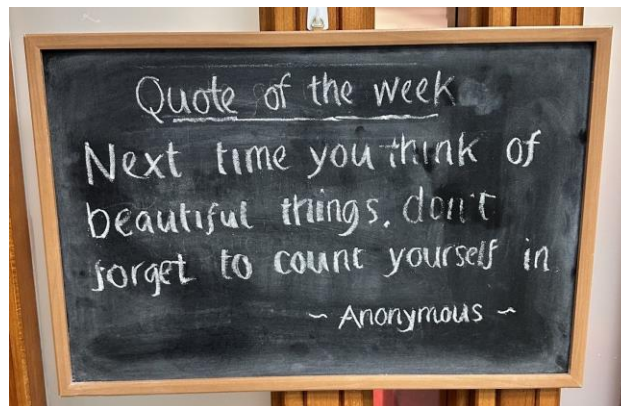 Quote of the week
Next time you think of
beautiful things, don't
forget to count yourself in
~ Anonymous ~